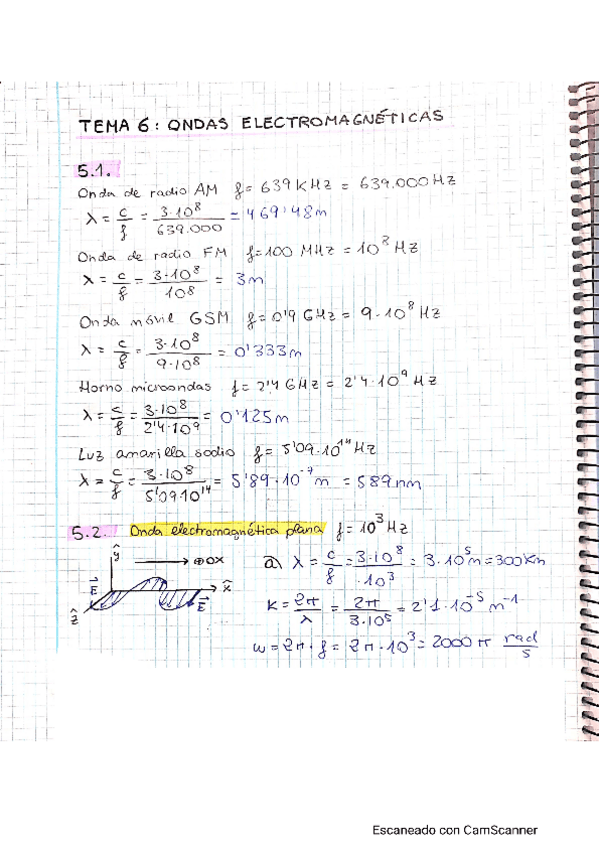 TEMA 6: ONDAS ELECTROMAGNÉTICAS
5.1.
Onda de radio AM f = 639 KHz = 639.000 Hz
λ = c/f = 3·10⁸/639.000 = 469'48 m
Onda de radio FM f = 100 MHz = 10⁸ Hz
λ = c/f = 3·10⁸/10⁸ = 3m
Onda móvil GSM f = 0'9 GHz = 9·10⁸ Hz
λ = c/f = 3·10⁸/9·10⁸ = 0'333m
Horno microondas f = 2'4 GHz = 2'4·10⁹ Hz
λ = c/f = 3·10⁸/2'4·10⁹ = 0'125m
Luz amarilla sodio f = 5'09·10¹⁴ Hz
λ = c/f = 3·10⁸/5'09·10¹⁴ = 5'89·10⁻⁷ m = 589 nm
5.2. Onda electromagnética plana f = 10³ Hz
ŷ ⊕OX
E⃗ x̂
ẑ E⃗
a) λ = c/f = 3·10⁸/·10³ = 3·10⁵m = 300Km
K = 2π/λ = 2π/3·10⁵ = 2'1·10⁻⁵ m⁻¹
w = 2π·f = 2π·10³ = 2000 π rad/s
Escaneado con CamScanner